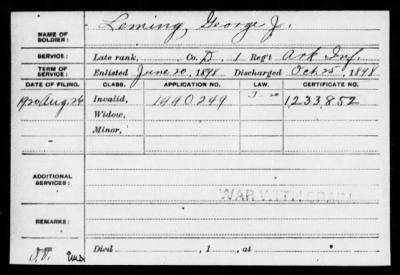 NAME OF SOLDIER: Leming, George J.
SERVICE: Late rank, Co. D, 1 Reg't Ark Inf.
TERM OF SERVICE: Enlisted June 20, 1898 Discharged Oct 25, 1898
DATE OF FILING. CLASS. APPLICATION NO. LAW. CERTIFICATE NO.
1920 Aug 26 Invalid, 1440249 1233,852
Widow,
Minor,
ADDITIONAL SERVICES:
WAR WITH SPAIN
REMARKS:
Died , 1 , at